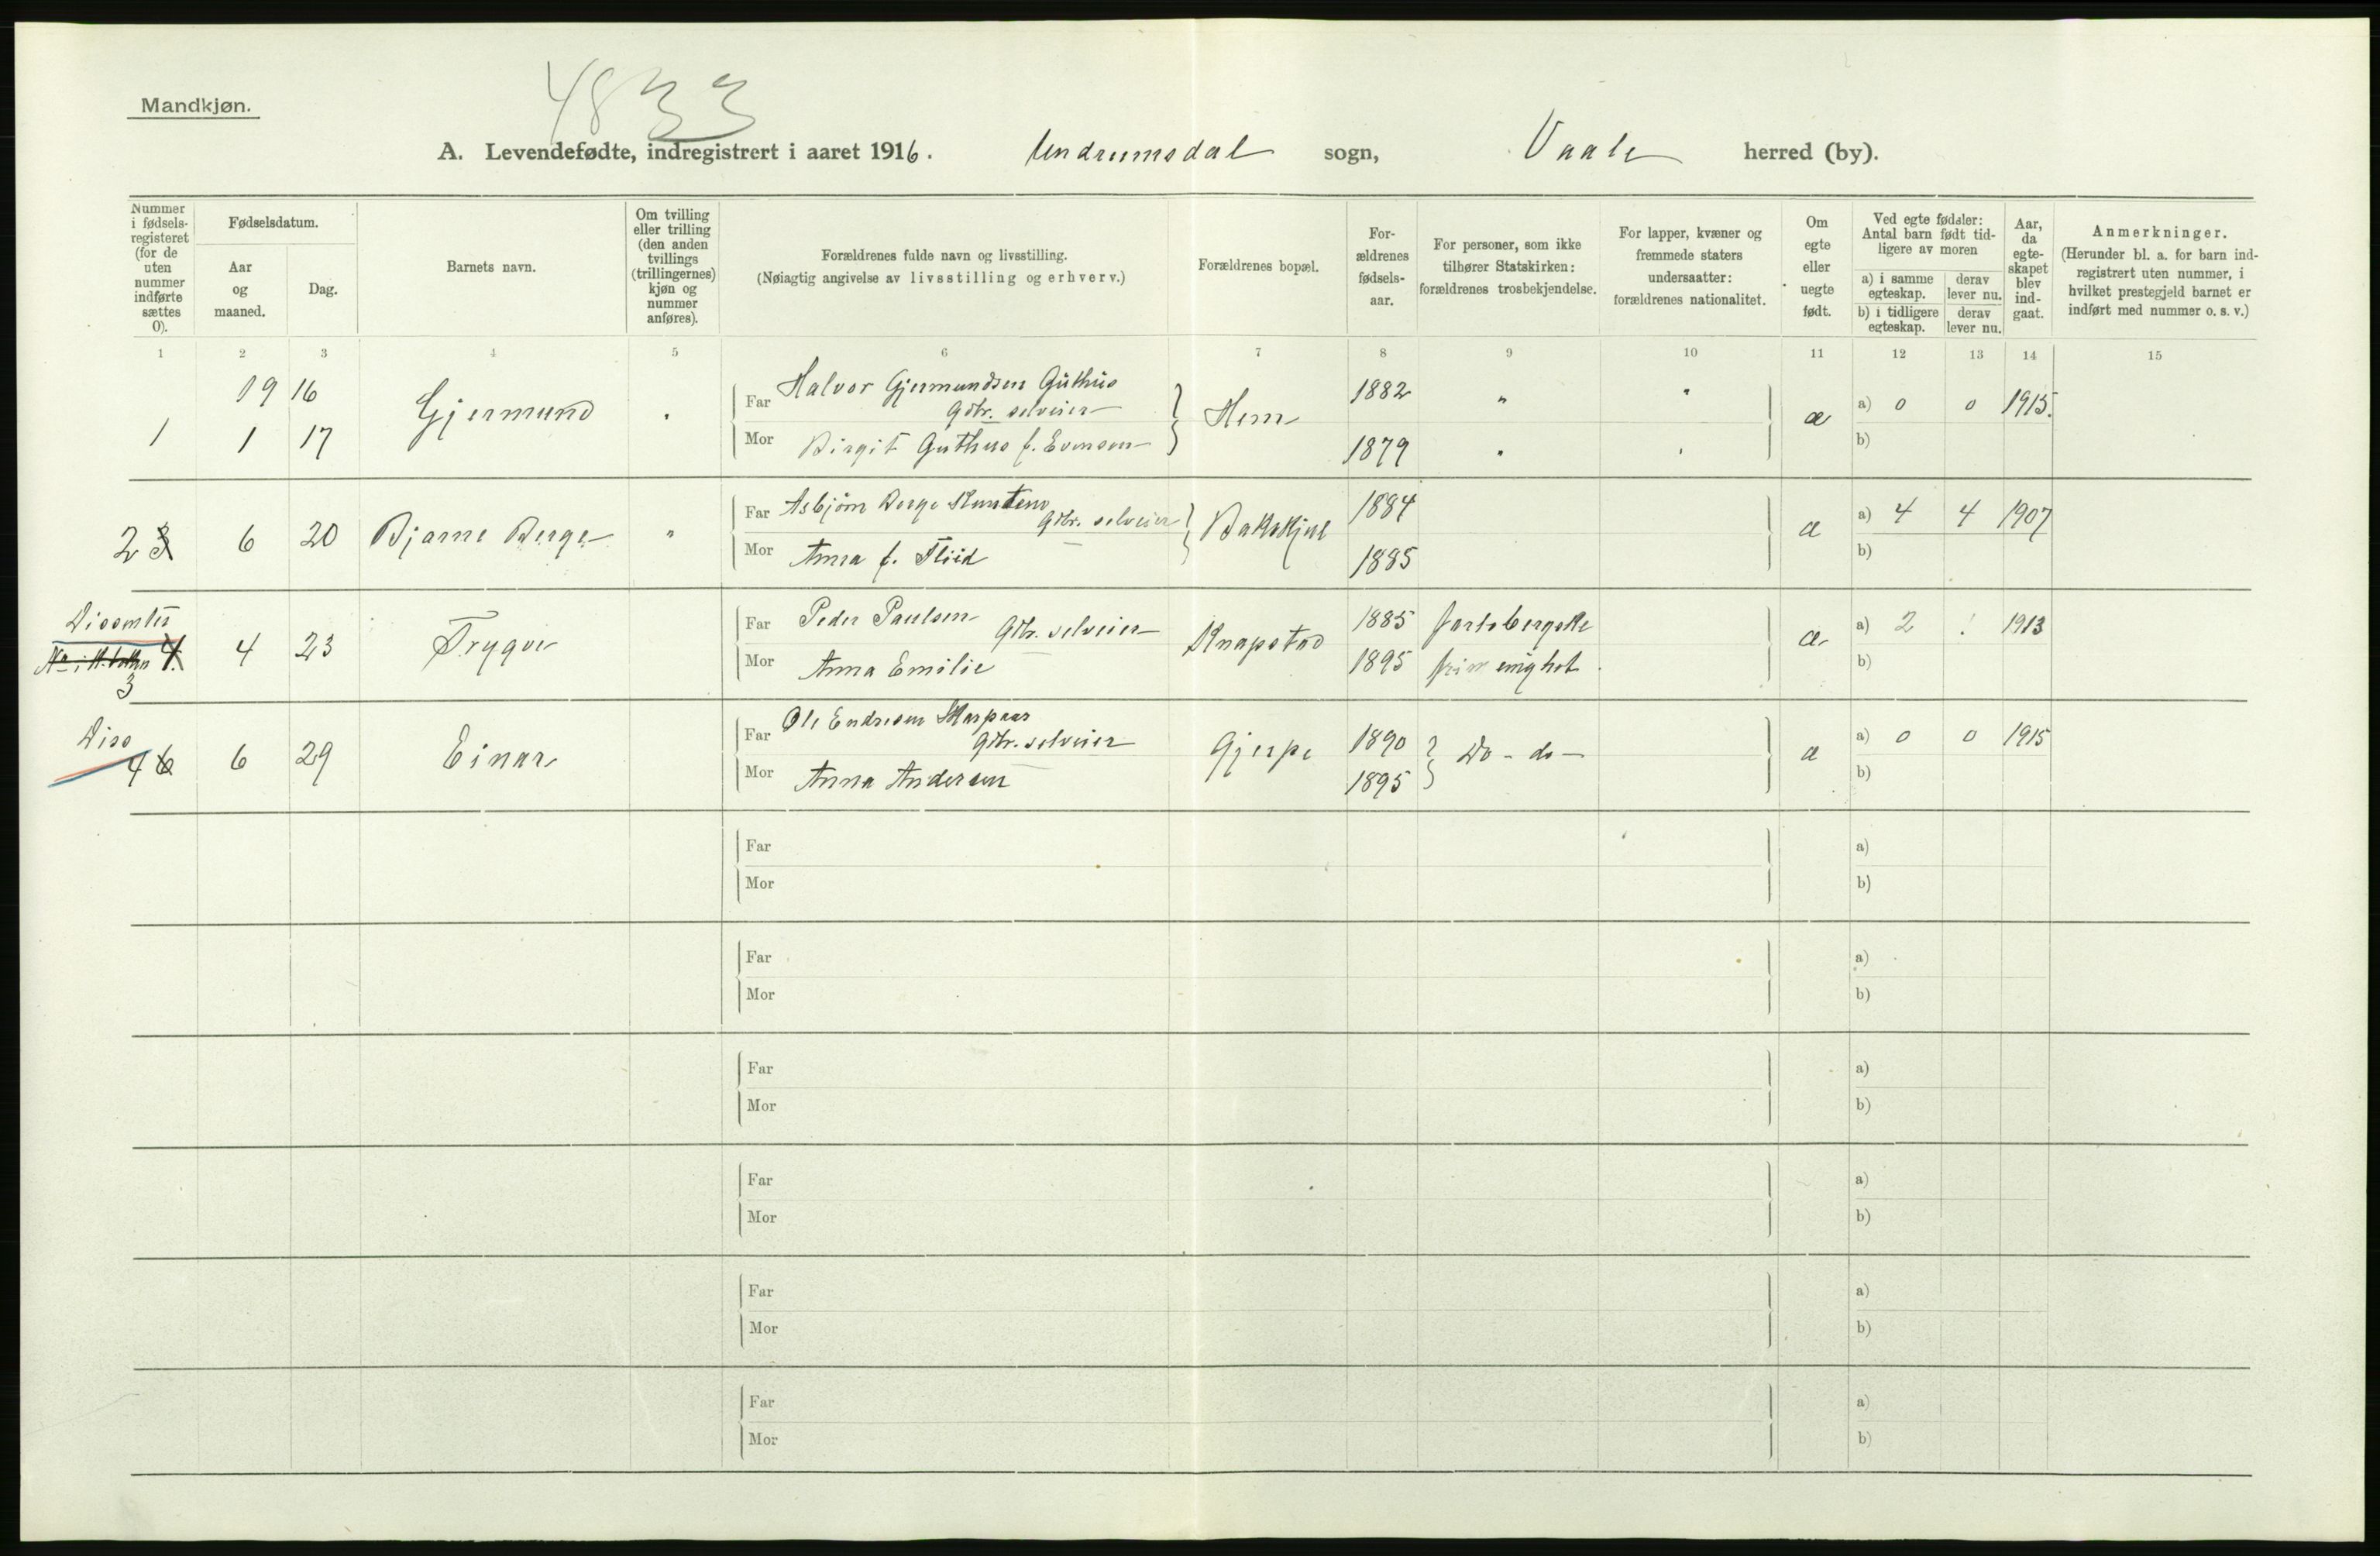 4833
Mandkjøn.
A. Levendefødte, indregistrert i aaret 1916. Undrumsdal sogn, Vaale herred (by).
Nummer i fødsels-registeret (for de uten nummer indførte sættes 0).
Fødselsdatum.
Aar og maaned.
Dag.
Barnets navn.
Om tvilling eller trilling (den anden tvillings (trillingernes) kjøn og nummer anføres).
Forældrenes fulde navn og livsstilling.
(Nøiagtig angivelse av livsstilling og erhverv.)
Forældrenes bopæl.
For-ældrenes fødsels-aar.
For personer, som ikke tilhører Statskirken: forældrenes trosbekjendelse.
For lapper, kvæner og fremmede staters undersaatter: forældrenes nationalitet.
Om egte eller uegte født.
Ved egte fødsler: Antal barn født tid-ligere av moren
a) i samme egteskap.
derav lever nu.
b) i tidligere egteskap.
derav lever nu.
Aar, da egte-skapet blev ind-gaat.
Anmerkninger.
(Herunder bl. a. for barn ind-registrert uten nummer, i hvilket prestegjeld barnet er indført med nummer o. s. v.)
1 2 3 4 5 6 7 8 9 10 11 12 13 14 15
1916
1 1 17 Gjermund " Far Halvor Gjermundsen Guthus
Gbr. selveier
Mor Birgit Guthus f. Evensen
Hem 1882 " "
1879 " "
æ a) 0 0 1915.
b)
2 3 6 20 Bjarne Berge " Far Asbjørn Berge Knutsen
Gbr. selveier
Mor Anna f. Fliid
Bakskjul 1884
1885
æ a) 4 4 1907
b)
Dissenter
4
3 4 23 Trygve Far Peder Paulsen
Gbr. selveier
Mor Anna Emilie
Knapstad 1885 Jarlsbergske
1895 frim enighet
æ a) 2 ! 1913
b)
Diss
4 6 6 29 Einar Far Ole Endresen Skarpaas
Gbr. selveier
Mor Anna Andersen
Gjerpe 1890
1895
Do - do -
æ a) 0 0 1915
b)
Far a)
Mor b)
Far a)
Mor b)
Far a)
Mor b)
Far a)
Mor b)
Far a)
Mor b)
Far a)
Mor b)